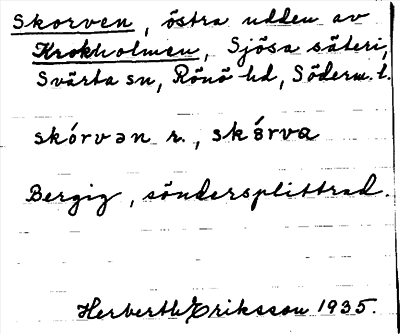 Skorven, östra udden av
Krokholmen, Sjösa säteri,
Svärta sn, Rönö hd, Söderm. l.
skórvən r., skórva
Bergig, söndersplittrad.
Herberth Eriksson 1935.